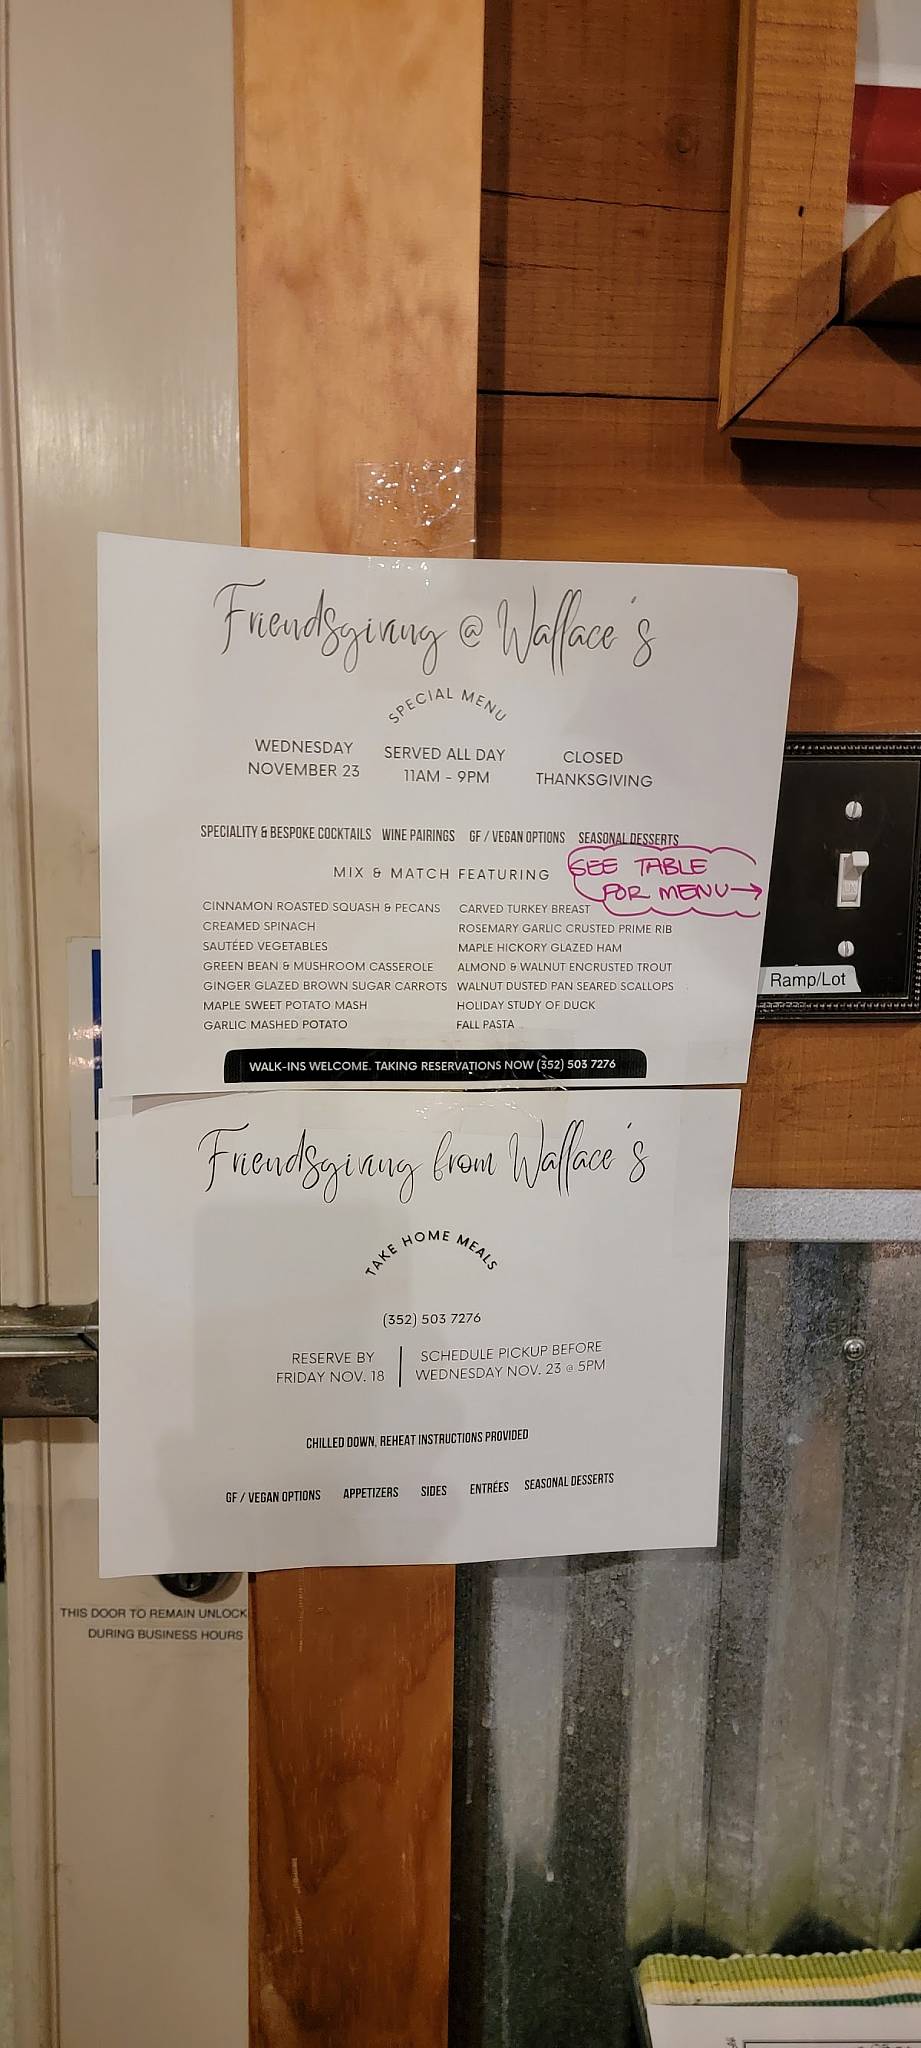 Friendsgiving @ Wallace's
SPECIAL MENU
WEDNESDAY
NOVEMBER 23
SERVED ALL DAY
11AM - 9PM
CLOSED
THANKSGIVING
SPECIALITY & BESPOKE COCKTAILS WINE PAIRINGS GF / VEGAN OPTIONS SEASONAL DESSERTS
MIX & MATCH FEATURING
SEE TABLE
FOR MENU→
CINNAMON ROASTED SQUASH & PECANS
CREAMED SPINACH
SAUTÉED VEGETABLES
GREEN BEAN & MUSHROOM CASSEROLE
GINGER GLAZED BROWN SUGAR CARROTS
MAPLE SWEET POTATO MASH
GARLIC MASHED POTATO
CARVED TURKEY BREAST
ROSEMARY GARLIC CRUSTED PRIME RIB
MAPLE HICKORY GLAZED HAM
ALMOND & WALNUT ENCRUSTED TROUT
WALNUT DUSTED PAN SEARED SCALLOPS
HOLIDAY STUDY OF DUCK
FALL PASTA
WALK-INS WELCOME. TAKING RESERVATIONS NOW (352) 503 7276
Ramp/Lot
Friendsgiving from Wallace's
TAKE HOME MEALS
(352) 503 7276
RESERVE BY
FRIDAY NOV. 18
SCHEDULE PICKUP BEFORE
WEDNESDAY NOV. 23 @ 5PM
CHILLED DOWN, REHEAT INSTRUCTIONS PROVIDED
GF / VEGAN OPTIONS APPETIZERS SIDES ENTRÉES SEASONAL DESSERTS
THIS DOOR TO REMAIN UNLOCK
DURING BUSINESS HOURS